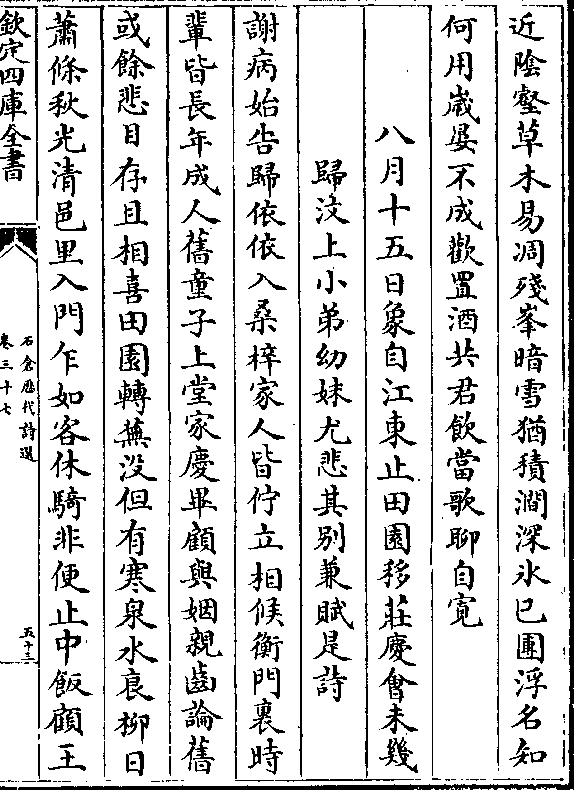 近陰壑草木易凋殘峯暗雪猶積澗深氷已團浮名知
何用嵗晏不成歡置酒共君飲當歌聊自寛
八月十五日象自江東止田園移莊慶會未幾
歸汶上小弟幼妹尤悲其别兼賦是詩
謝病始告歸依依入桑梓家人皆佇立相候衡門裏時
輩皆長年成人舊童子上堂家慶畢顧與姻親齒論舊
或餘悲目存且相喜田園轉蕪没但有寒泉水衰柳日
蕭條秋光清邑里入門乍如客休騎非便止中飯顧王
欽定四庫全書
石倉歴代詩選
卷三十七
五十三